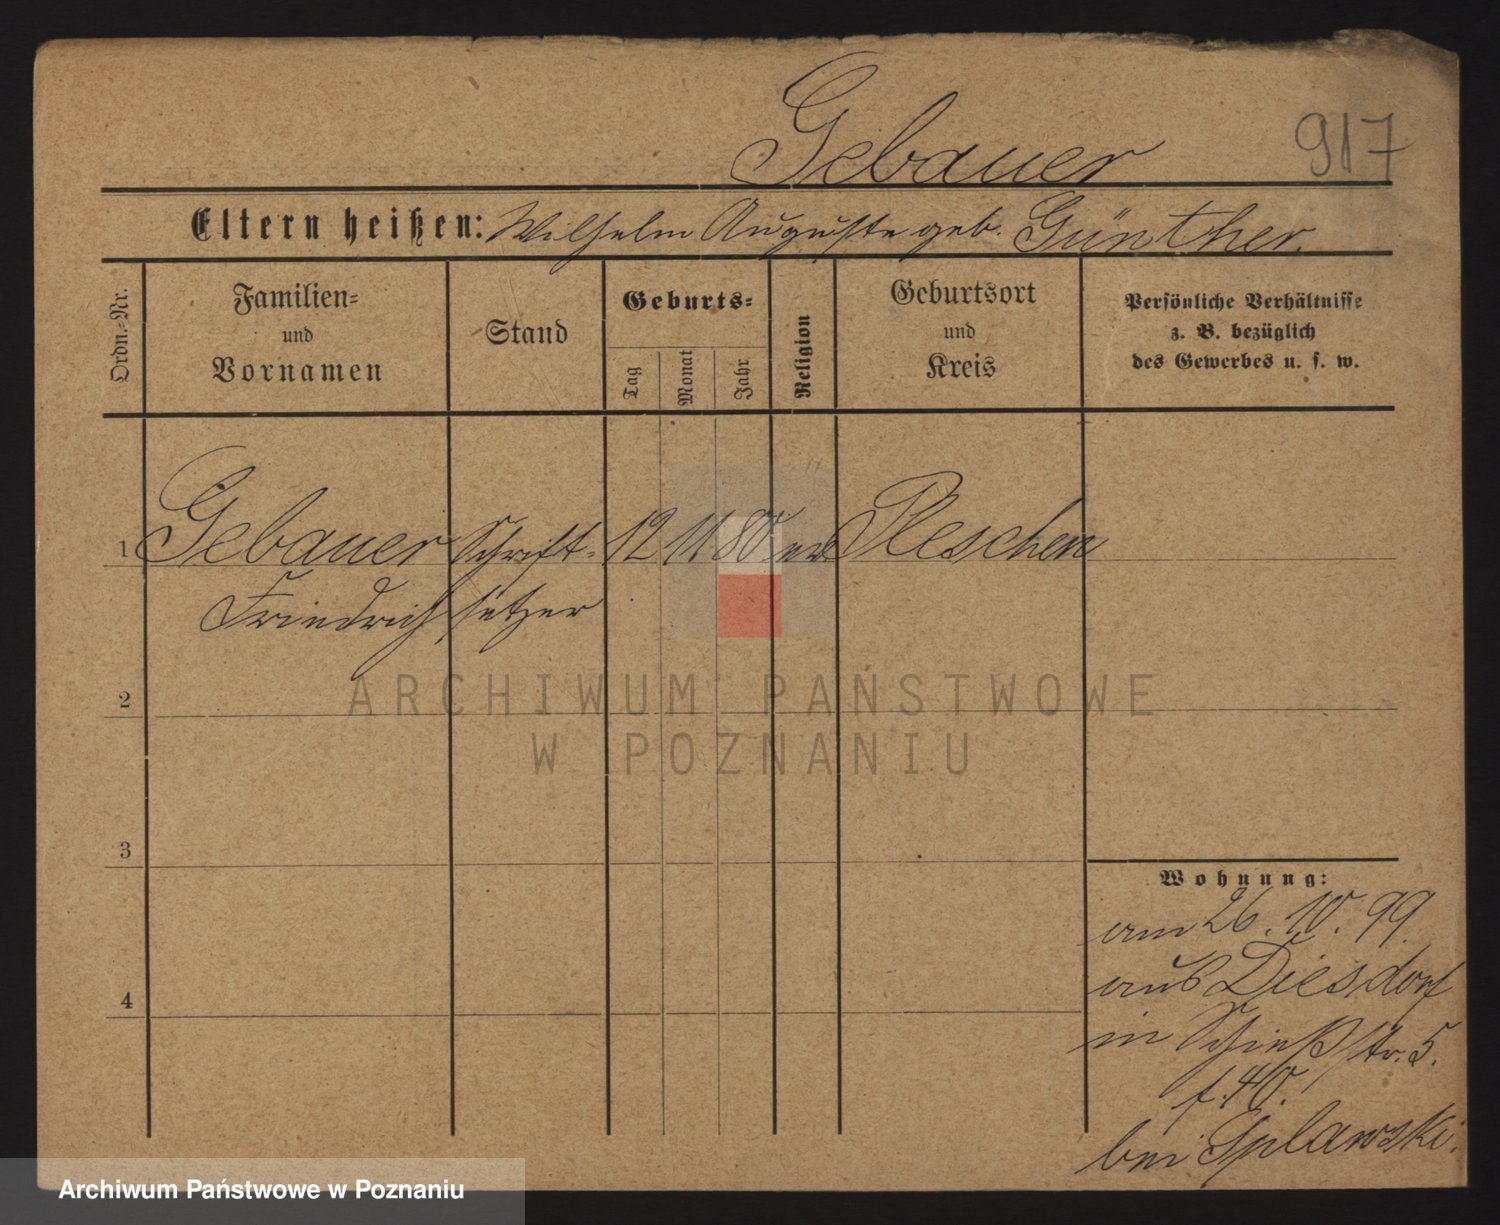 Gebauer 917
Eltern heißen: Wilhelm Auguste geb. Günther.
Ordn.=Nr.
Familien=
und
Vornamen
Stand
Geburts=
Tag
Monat
Jahr
Religion
Geburtsort
und
Kreis
Persönliche Verhältnisse
z. B. bezüglich
des Gewerbes u. s. w.
1 Gebauer Schrift- 12 11 80 ev. Pleschen
Friedrich setzer
2
3
4
Wohnung:
am 26. 10. 99
aus Diesdorf
in Schießstr. 5.
f. 40.
bei
ARCHIWUM PAŃSTWOWE
W POZNANIU
Archiwum Państwowe w Poznaniu